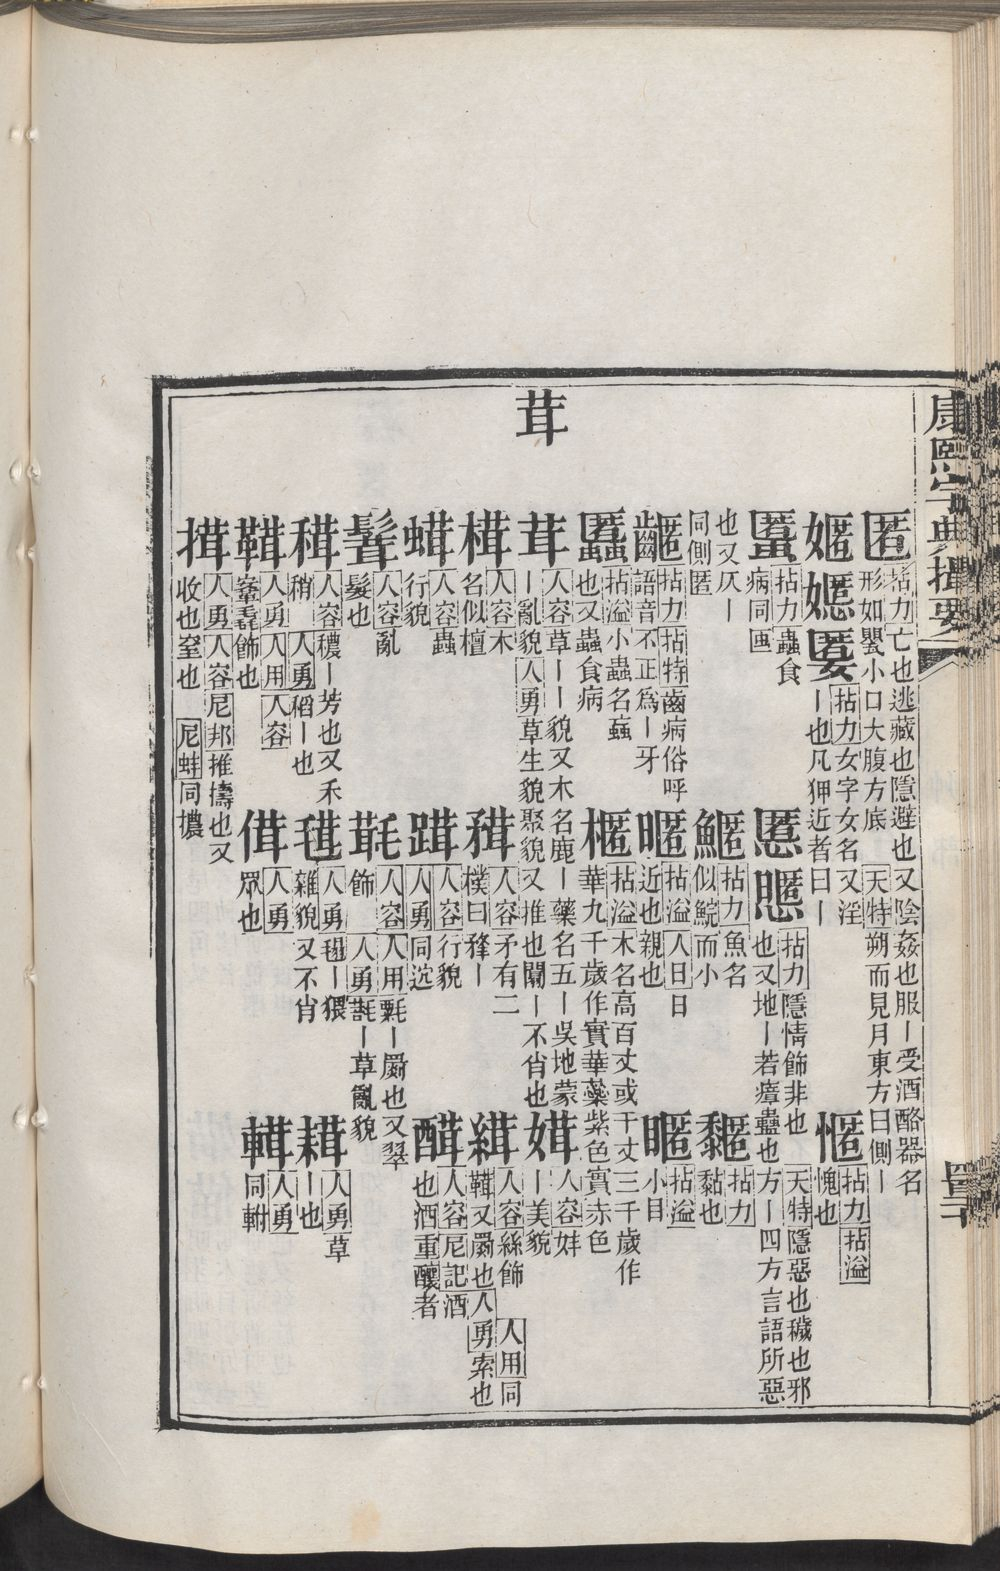 康熙字典撮要
匿 拈力 亡也逃藏也隱避也又陰姦也服丨受酒酪器名
形如甖小口大腹方底 天特 朔而見月東方曰側丨
嫟 嬺 匽 拈力 女字女名又淫
丨也凡狎近者曰丨
惬 拈力 拈溢
愧也
拈力 蟲食
病同䘌
慝 拈力 隱情飾非也 天特 隱惡也穢也邪
也又地丨若瘴蠱也方丨四方言語所惡
也又仄丨
同側匿
拈力 拈特 齒病俗呼
語音不正爲丨牙
拈力 魚名
似鯇而小
拈力
黏也
暱 拈溢 人日 日
近也親也
拈溢
小目
拈溢 小蟲名蟁
也又蟲食病
拈溢 木名高百丈或千丈三千歲作
華九千歲作實華蘂紫色實赤色
茸
茸 人容 草丨丨貌又木名鹿丨藥名五丨吳地蒙
丨亂貌 人勇 草生貌聚貌又推也闒丨不肖也
人容 妦
丨美貌
榵 人容 木
名似檀
人容 矛有二
樸曰丨
人容 絲飾 人用 同
鞾又罽也 人勇 索也
人容 蟲
行貌
人容 行貌
人勇 同
人容 尼記 酒
也酒重釀者
人容 亂
髮也
人容 人用 氀丨罽也又翠
飾 人勇 丨草亂貌
人容 穠丨芳也又禾
稍 人勇 稻丨也
人勇 丨猥
雜貌又不肖
人勇 草
丨也
人勇 人用 人容
毳飾也
搑 人勇 人容 尼邦 推擣也又
收也窒也 尼蚌 同擃
人勇
眾也
人勇
同軵